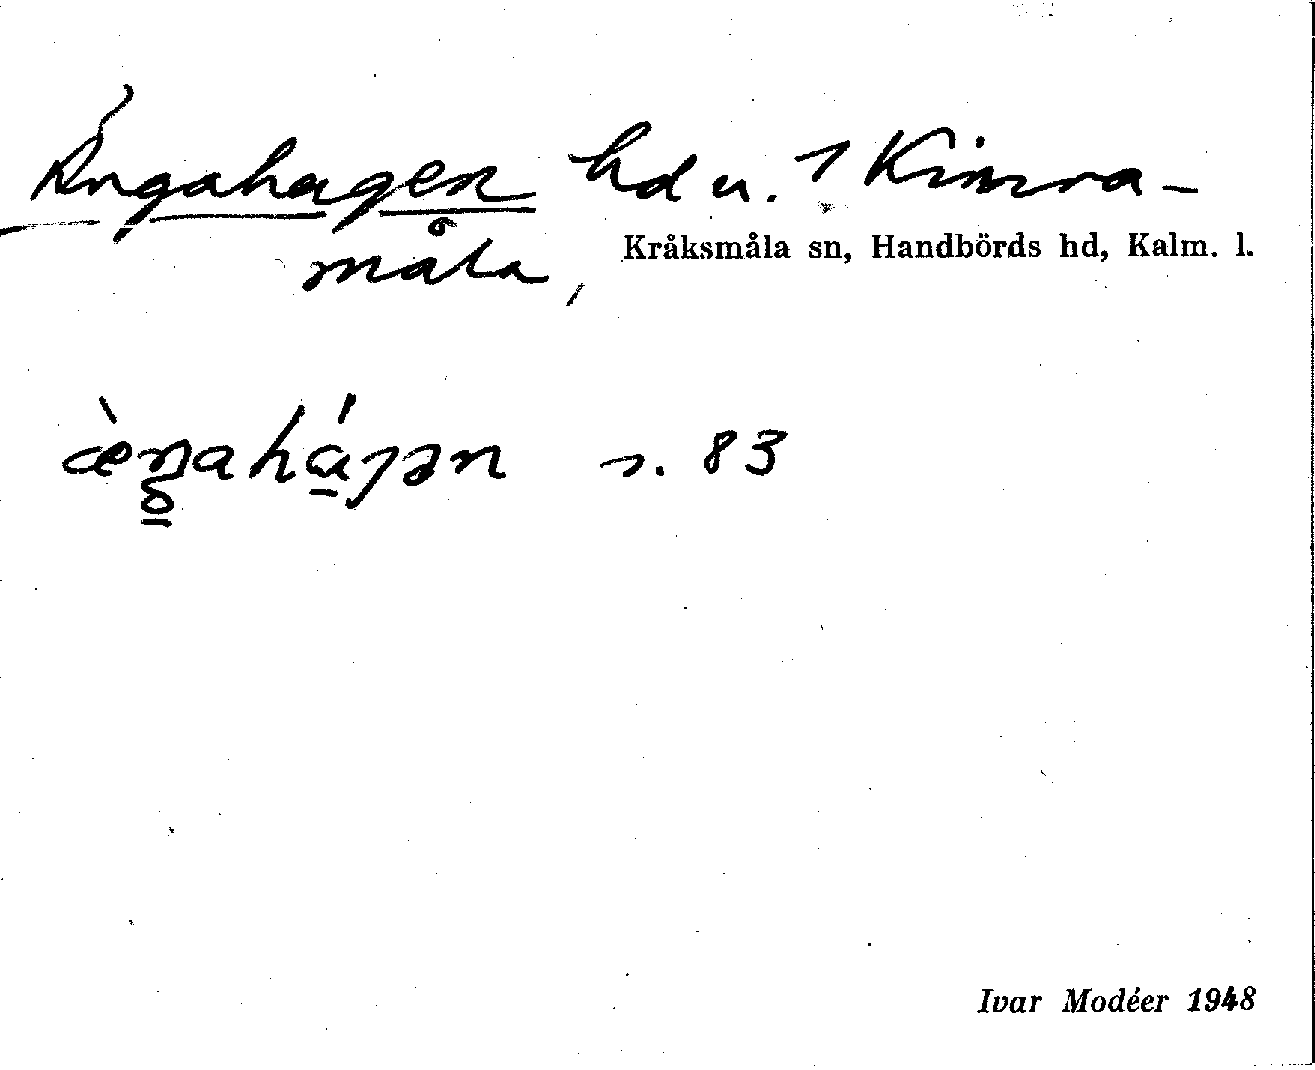 Ängahagen hd u. 1 Kimra-
måla, Kråksmåla sn, Handbörds hd, Kalm. l.
s. 83
Ivar Modéer 1948